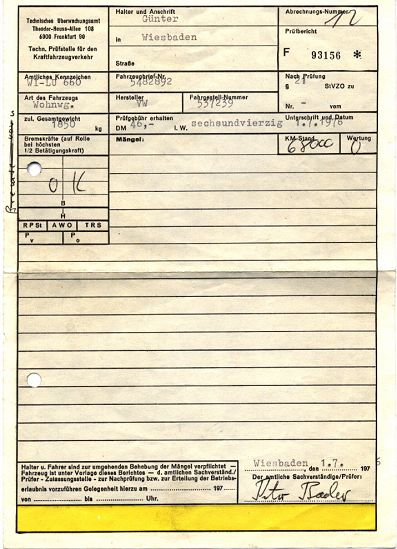 Technisches Überwachungsamt
Theodor-Heuss-Allee 108
6000 Frankfurt 90
Techn. Prüfstelle für den
Kraftfahrzeugverkehr
Halter und Anschrift
Günter
in Wiesbaden
Straße
Abrechnungs-Nummer
12
Prüfbericht
F 93156 *
Amtliches Kennzeichen
WI-LU 660
Fahrzeugbrief-Nr.
5482892
Nach Prüfung
§ 21 StVZO zu
Nr. - vom
Art des Fahrzeugs
Wohnwg.
Hersteller
VW
Fahrgestell-Nummer
537239
zul. Gesamtgewicht
1850 kg
Prüfgebühr erhalten
DM 46,- i. W. sechsundvierzig
Unterschrift und Datum
1.7.1976
Bremskräfte (auf Rolle
bei höchsten
1/2 Betätigungskraft)
Mängel:
KM-Stand
68000
Wertung
0
OK
B
H
RPSt AWO TRS
P v P o
Halter u. Fahrer sind zur umgehenden Behebung der Mängel verpflichtet —
Fahrzeug ist unter Vorlage dieses Berichtes — d. amtlichen Sachverständ./
Prüfer - Zulassungsstelle - zur Nachprüfung bzw. zur Erteilung der Betriebs-
erlaubnis vorzuführen Gelegenheit hierzu am 197
von bis Uhr.
Wiesbaden, den 1.7. 1976
Der amtliche Sachverständige/Prüfer: